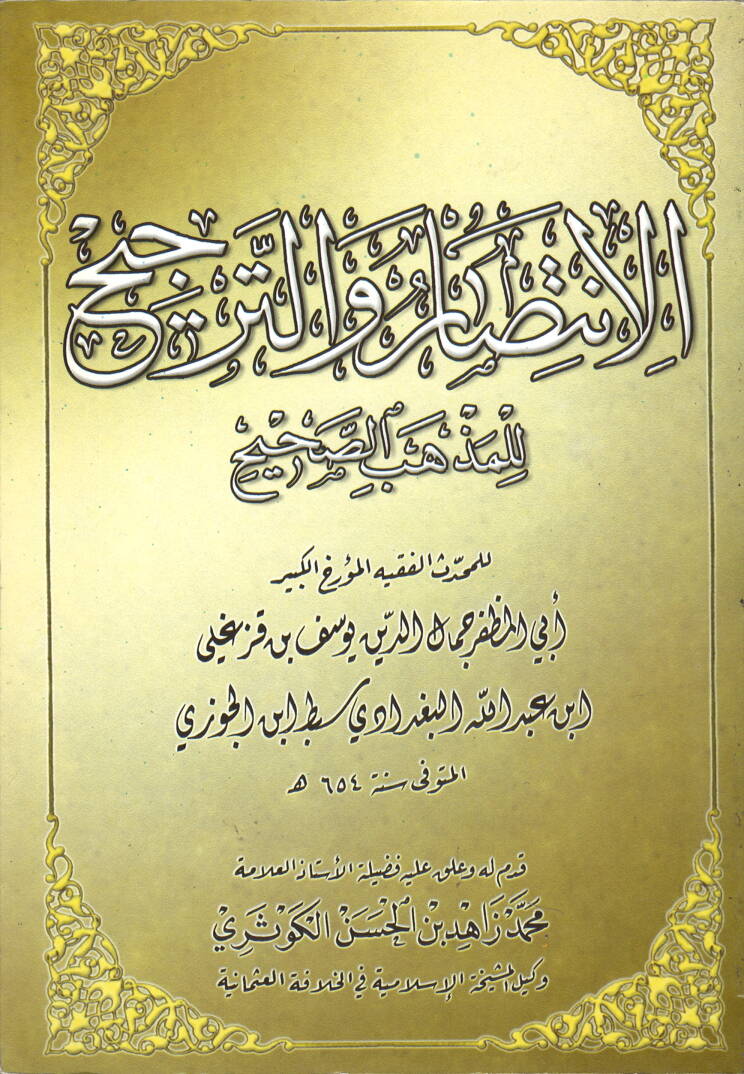 الانتصار والترجيح
للمذهب الصحيح
للمحدث الفقيه المؤرخ الكبير
أبي المظفر جمال الدين يوسف بن قزغلي
ابن عبد الله البغدادي سبط ابن الجوزي
المتوفى سنة ٦٥٤ هـ
قدم له وعلق عليه فضيلة الأستاذ العلامة
محمد زاهد بن الحسن الكوثري
وكيل المشيخة الإسلامية في الخلافة العثمانية